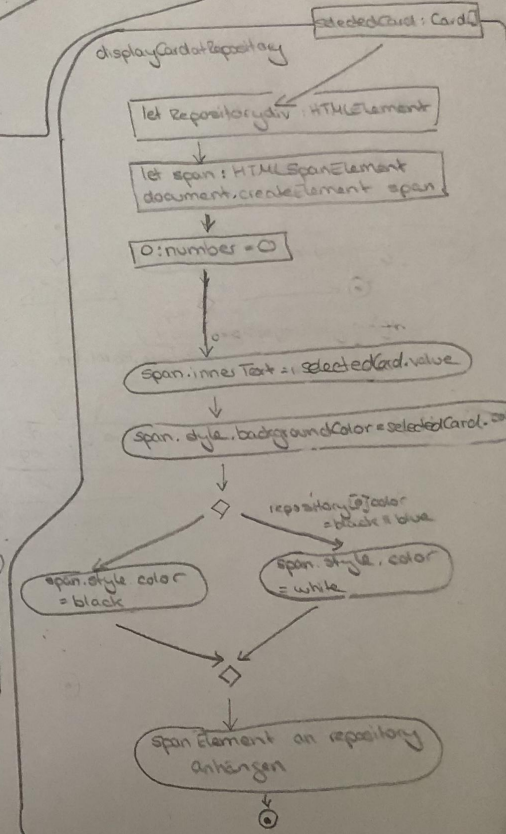 selectedCard : Card[]
displayCardofRepository
let Repositorydiv : HTMLElement
let span : HTMLSpanElement
document.createElement span
0:number = 0
span.innerText = selectedCard.value
span.style.backgroundColor = selectedCard.
repository[0]color
= black || blue
span.style color
= black
span.style.color
= white
span Element an repository
anhängen